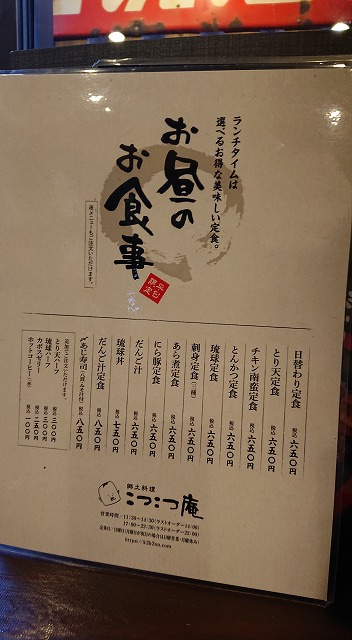 ランチタイムは
選べるお得な美味しい定食。
お昼の
お食事
平日
限定
夜メニューもご注文いただけます。
日替わり定食 税込 六五〇円
とり天定食 税込 六五〇円
チキン南蛮定食 税込 六五〇円
とんかつ定食 税込 六五〇円
琉球定食 税込 六五〇円
刺身定食(三種) 税込 六五〇円
あら煮定食 税込 六五〇円
にら豚定食 税込 六五〇円
だんご汁 税込 六五〇円
琉球丼 税込 七五〇円
だんご汁定食 税込 八五〇円
あじ寿司 税込 八五〇円
追加でご注文いただけます。
とり天ハーフ 税込 三〇〇円
琉球ハーフ 税込 三〇〇円
カボスゼリー 税込 二五〇円
ホットコーヒー 税込 一〇〇円
郷土料理
こつこつ庵
営業時間/11:30〜14:30(ラストオーダー14:00)
17:00〜22:30(ラストオーダー22:00)
https://k2k2an.com